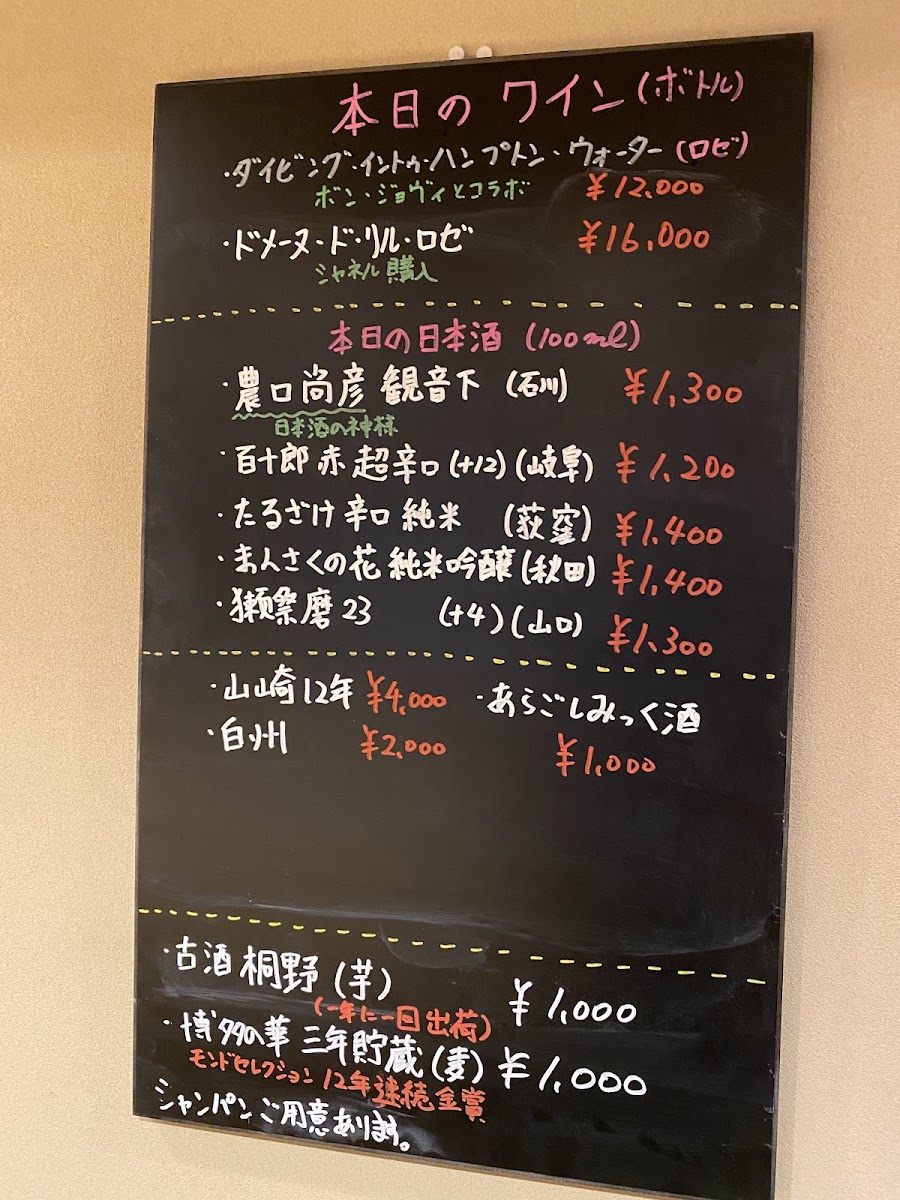 本日の ワイン(ボトル)
・ダイビング・イントゥ・ハンプトン・ウォーター(ロゼ)
ボン・ジョヴィとコラボ ¥12,000
・ドメーヌ・ド・リル・ロゼ ¥16,000
シャネル購入
本日の日本酒 (100ml)
・農口尚彦 観音下 (石川) ¥1,300
日本酒の神様
・百十郎 赤 超辛口 (+12) (岐阜) ¥1,200
・たるざけ 辛口 純米 (荻窪) ¥1,400
・まんさくの花 純米吟醸 (秋田) ¥1,400
・獺祭 磨23 (+4) (山口) ¥1,300
・山崎12年 ¥4,000 ・あらごしみっく酒
・白州 ¥2,000 ¥1,000
・古酒 桐野 (芋) ¥1,000
(一年に一回出荷)
・博多の華 三年貯蔵(麦) ¥1,000
モンドセレクション 12年連続金賞
シャンパンご用意あります。